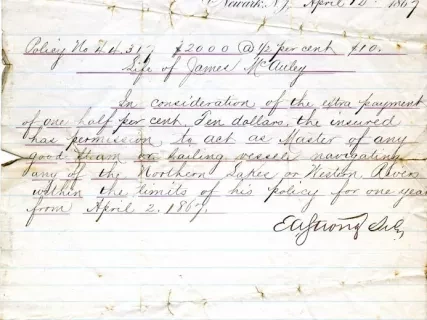 Newark, N.J. April 12th 1867
Policy No 24,317 $2000 @ ½ per cent $10.
Life of James McAuley
In consideration of the extra payment
of one half per cent. Ten dollars, the insured
has permission to act as Master of any
good steam or sailing vessel navigating
any of the Northern Lakes or Western Rivers
within the limits of his policy for one year
from April 2. 1867.
EAStrong Secy